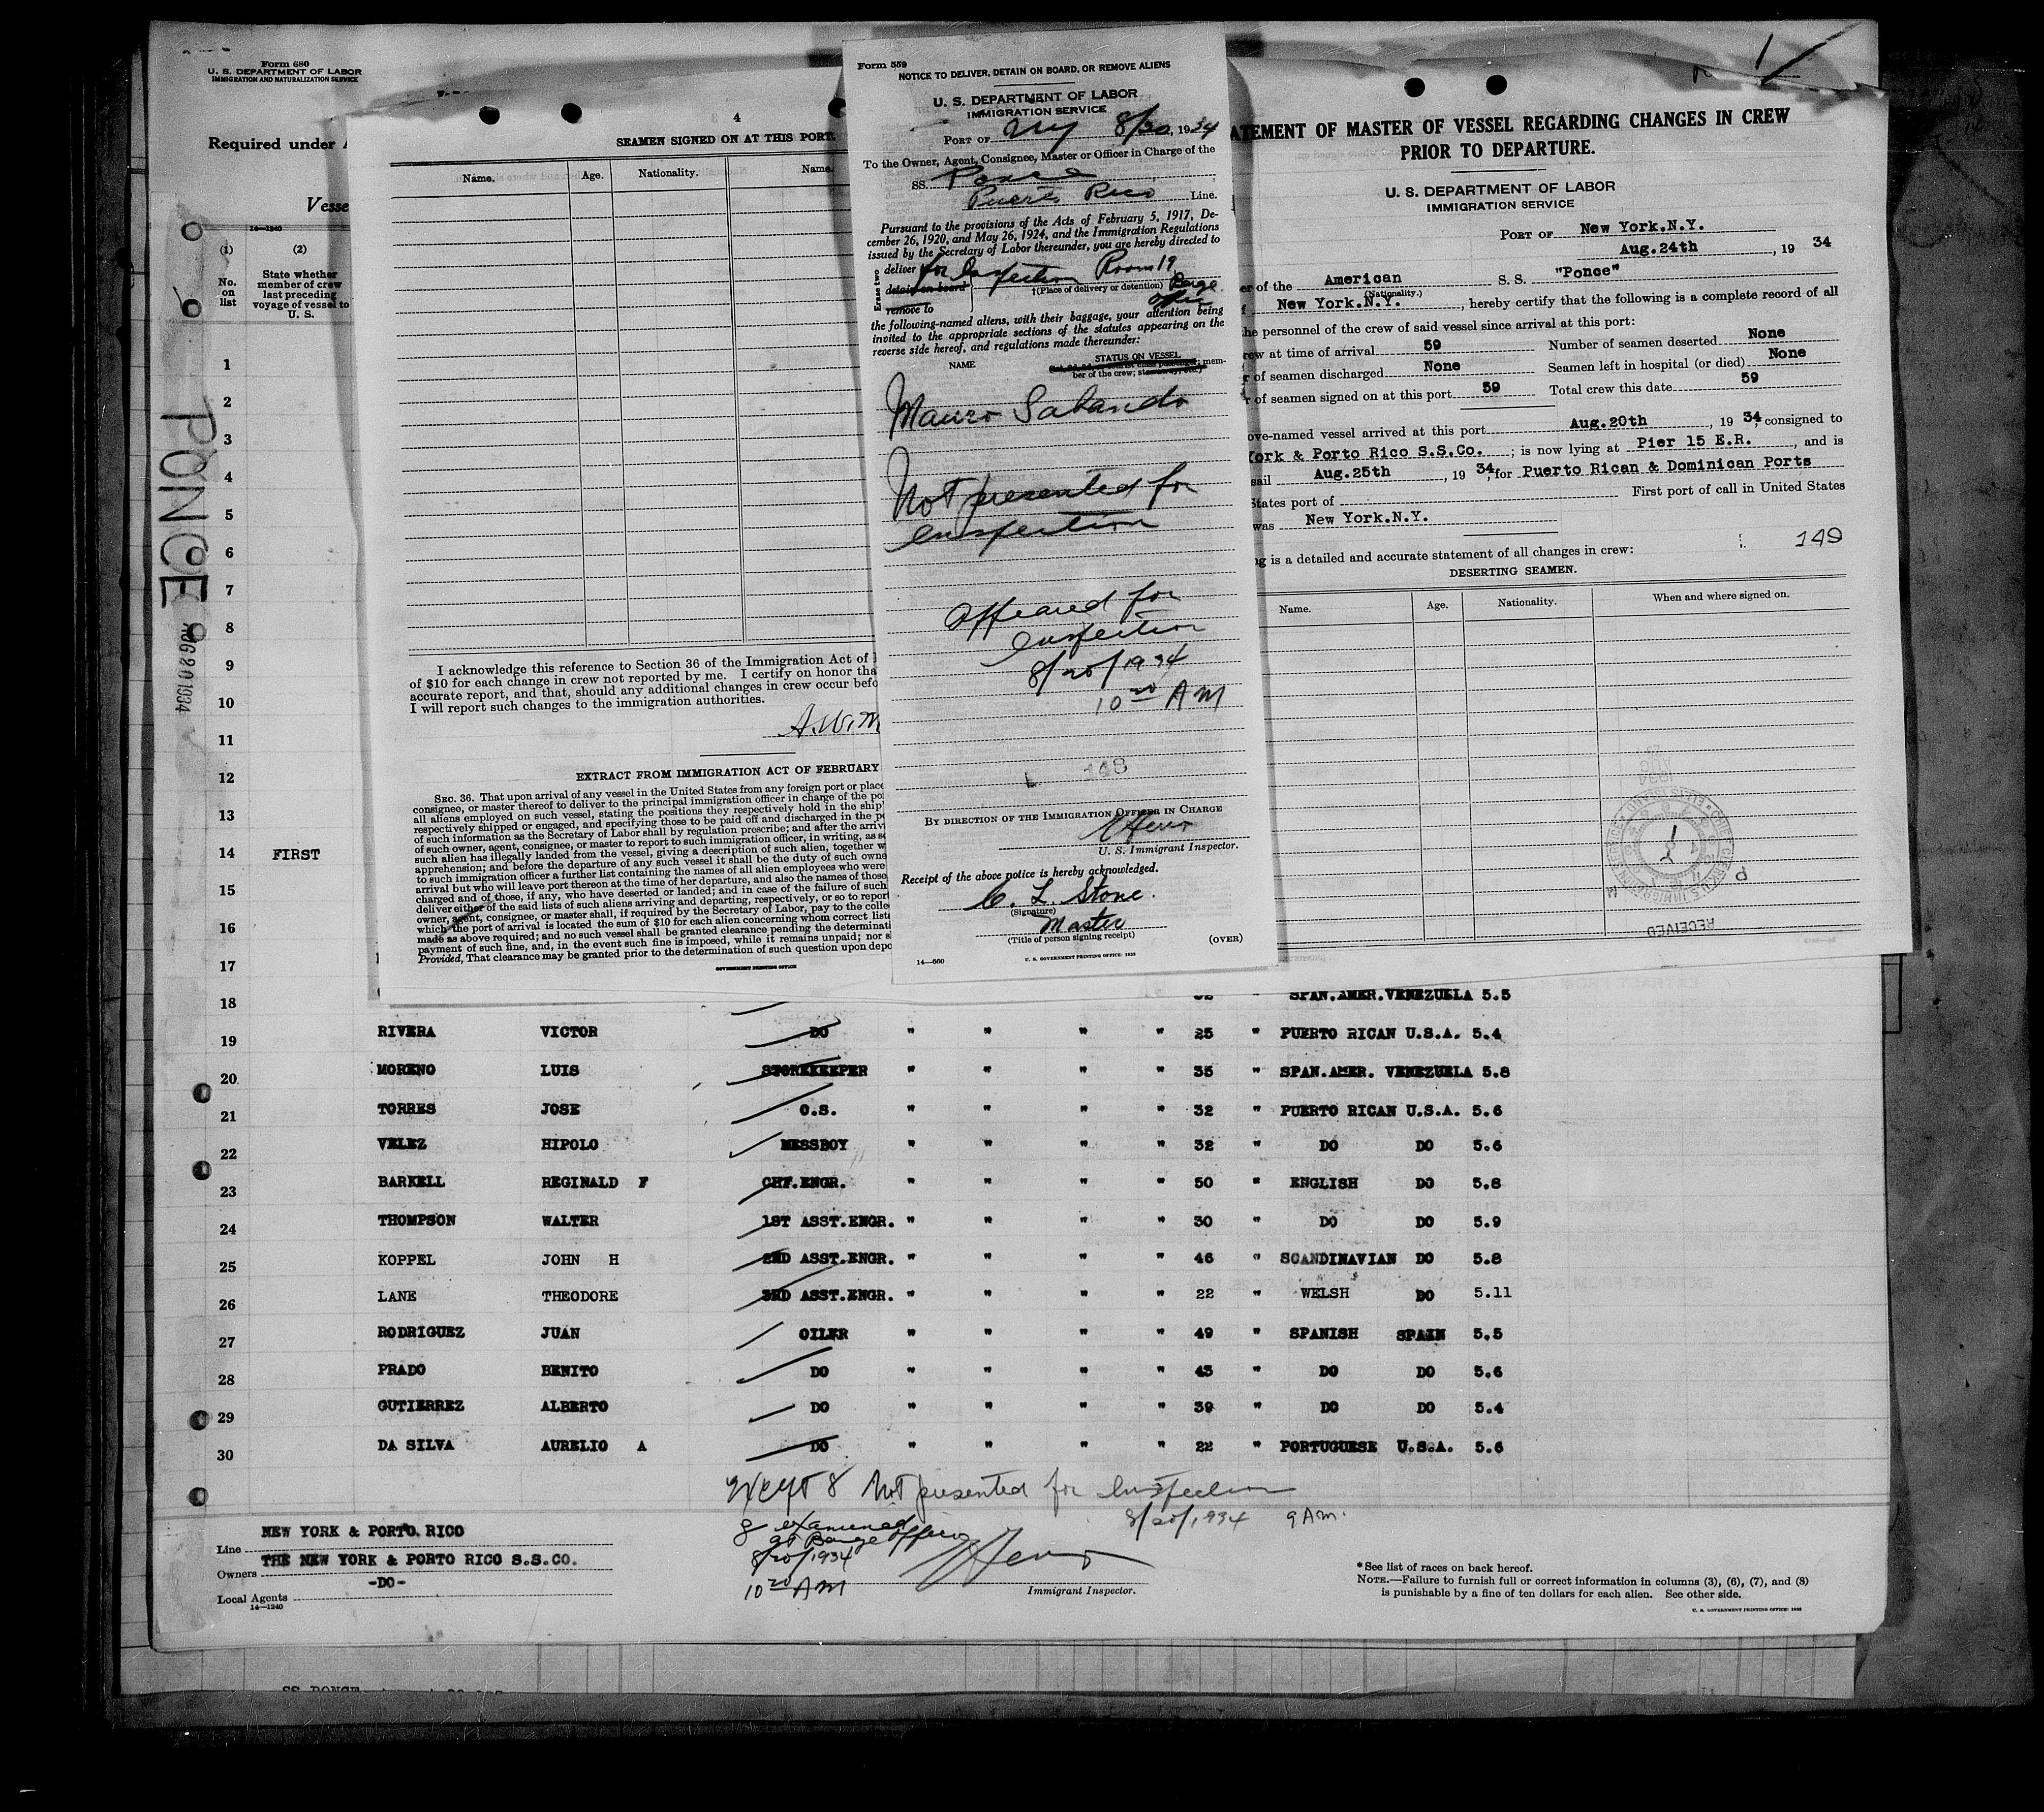 Form 680
U. S. DEPARTMENT OF LABOR
IMMIGRATION AND NATURALIZATION SERVICE
Required under
Vesse
14—1240
(1)
(2)
No. on list
State whether member of crew last preceding voyage of vessel to U. S.
PONCE
AUG 20 1934
1
2
3
4
5
6
7
8
9
10
11
12
13
14 FIRST
15
16
17
4
SEAMEN SIGNED ON AT THIS PORT.
Name. Age. Nationality. Name.
I acknowledge this reference to Section 36 of the Immigration Act of
of $10 for each change in crew not reported by me. I certify on honor tha
accurate report, and that, should any additional changes in crew occur befo
I will report such changes to the immigration authorities.
A.W.M
EXTRACT FROM IMMIGRATION ACT OF FEBRUARY
SEC. 36. That upon arrival of any vessel in the United States from any foreign port or place
consignee, or master thereof to deliver to the principal immigration officer in charge of the po
all aliens employed on such vessel, stating the positions they respectively hold in the ship'
respectively shipped or engaged, and specifying those to be paid off and discharged in the p
of such information as the Secretary of Labor shall by regulation prescribe; and after the arriv
of such owner, agent, consignee, or master to report to such immigration officer, in writing, as s
such alien has illegally landed from the vessel, giving a description of such alien, together w
apprehension; and before the departure of any such vessel it shall be the duty of such owne
to such immigration officer a further list containing the names of all alien employees who were
arrival but who will leave port thereon at the time of her departure, and also the names of those
charged and of those, if any, who have deserted or landed; and in case of the failure of such
deliver either of the said lists of such aliens arriving and departing, respectively, or so to report
owner, agent, consignee, or master shall, if required by the Secretary of Labor, pay to the colle
which the port of arrival is located the sum of $10 for each alien concerning whom correct lists
made as above required; and no such vessel shall be granted clearance pending the determinati
payment of such fine, and, in the event such fine is imposed, while it remains unpaid; nor s
Provided, That clearance may be granted prior to the determination of such question upon depo
GOVERNMENT PRINTING OFFICE
Form 559
NOTICE TO DELIVER, DETAIN ON BOARD, OR REMOVE ALIENS
U. S. DEPARTMENT OF LABOR
IMMIGRATION SERVICE
PORT OF NY 8/20, 1934
To the Owner, Agent, Consignee, Master or Officer in Charge of the
SS. Ponce
Puerto Rico Line.
Pursuant to the provisions of the Acts of February 5, 1917, De-
cember 26, 1920, and May 26, 1924, and the Immigration Regulations
issued by the Secretary of Labor thereunder, you are hereby directed to
Erase two
deliver for Inspection Room 19
detain on board †(Place of delivery or detention) Barge
remove to Office
the following-named aliens, with their baggage, your attention being
invited to the appropriate sections of the statutes appearing on the
reverse side hereof, and regulations made thereunder:
NAME STATUS ON VESSEL
mem-
ber of the crew;
Mauro Sabando
Not presented for
Inspection
Appeared for
Inspection
8/20/1934
10 20 AM
148
BY DIRECTION OF THE IMMIGRATION OFFICER IN CHARGE
U. S. Immigrant Inspector.
Receipt of the above notice is hereby acknowledged.
C. L. Stone.
(Signature)
Master
(Title of person signing receipt)
(OVER)
14—660
U. S. GOVERNMENT PRINTING OFFICE: 1933
ATEMENT OF MASTER OF VESSEL REGARDING CHANGES IN CREW
PRIOR TO DEPARTURE.
U. S. DEPARTMENT OF LABOR
IMMIGRATION SERVICE
PORT OF New York.N.Y.
Aug.24th, 19 34
er of the American S. S. "Ponce"
(Nationality.)
New York.N.Y., hereby certify that the following is a complete record of all
he personnel of the crew of said vessel since arrival at this port:
rew at time of arrival 59 Number of seamen deserted None
r of seamen discharged None Seamen left in hospital (or died) None
r of seamen signed on at this port 59 Total crew this date 59
ove-named vessel arrived at this port Aug.20th, 19 34, consigned to
ork & Porto Rico S.S.Co.; is now lying at Pier 15 E.R., and is
sail Aug.25th, 19 34, for Puerto Rican & Dominican Ports
States port of First port of call in United States
was New York.N.Y.
ng is a detailed and accurate statement of all changes in crew:
149
DESERTING SEAMEN.
Name. Age. Nationality. When and where signed on.
RECEIVED
18 SPAN.AMER.VENEZUELA 5.5
19 RIVERA VICTOR DO " " " " 25 " PUERTO RICAN U.S.A. 5.4
20 MORENO LUIS STOREKEEPER " " " " 35 " SPAN.AMER. VENEZUELA 5.8
21 TORRES JOSE O.S. " " " " 32 " PUERTO RICAN U.S.A. 5.6
22 VELEZ HIPOLO MESSBOY " " " " 32 " DO DO 5.6
23 BARKELL REGINALD F CHF.ENGR. " " " " 50 " ENGLISH DO 5.8
24 THOMPSON WALTER 1ST ASST.ENGR. " " " " 30 " DO DO 5.9
25 KOPPEL JOHN H 2ND ASST.ENGR. " " " " 46 " SCANDINAVIAN DO 5.8
26 LANE THEODORE 3RD ASST.ENGR. " " " " 22 " WELSH DO 5.11
27 RODRIGUEZ JUAN OILER " " " " 49 " SPANISH SPAIN 5.5
28 PRADO BENITO DO " " " " 43 " DO DO 5.6
29 GUTIERREZ ALBERTO DO " " " " 39 " DO DO 5.4
30 DA SILVA AURELIO A DO " " " " 22 " PORTUGUESE U.S.A. 5.6
Except 8 Not presented for Inspection
8/20/1934 9 AM.
8 examined
at Barge Office
8/20/1934
10 20 AM
Immigrant Inspector.
Line NEW YORK & PORTO RICO
Owners THE NEW YORK & PORTO RICO S.S.CO.
Local Agents -DO-
14—1240
*See list of races on back hereof.
NOTE.—Failure to furnish full or correct information in columns (3), (6), (7), and (8)
is punishable by a fine of ten dollars for each alien. See other side.
U. S. GOVERNMENT PRINTING OFFICE: 1933